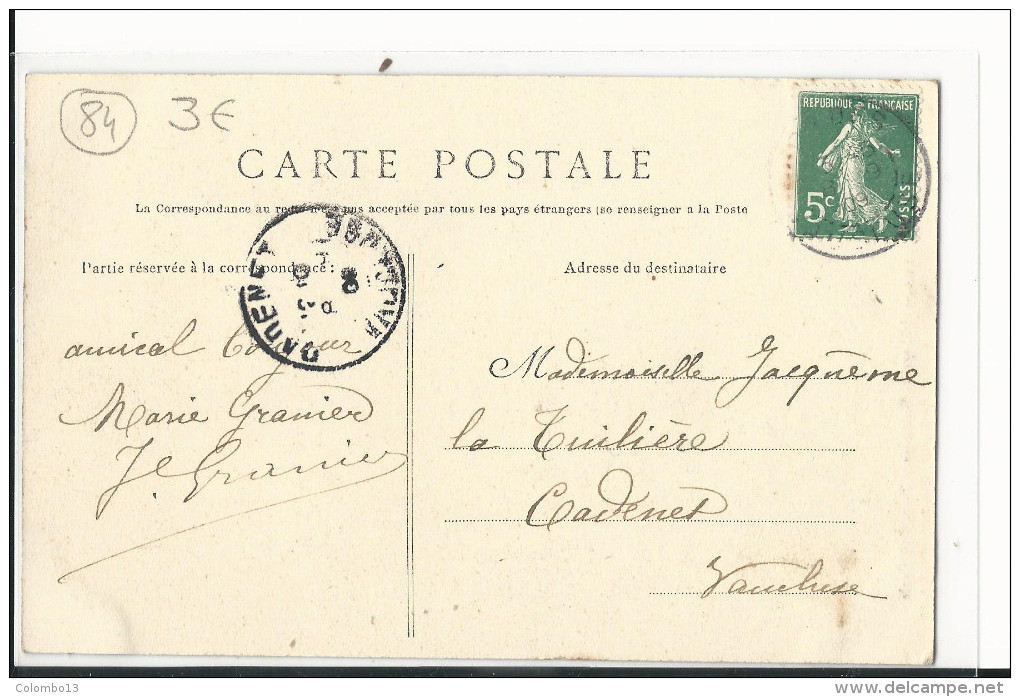 84 3€
REPUBLIQUE FRANÇAISE
5c
POSTES
CARTE POSTALE
La Correspondance au pas acceptée par tous les pays étrangers (se renseigner a la Poste
Partie réservée à la correspondance :
Adresse du destinataire
CADENET
VAUCLUSE
amical Bonjour
Marie Granier
Granier
Mademoiselle Jacquème
la Tuilière
Cadenet
Vaucluse
Colombo13
www.delcampe.net